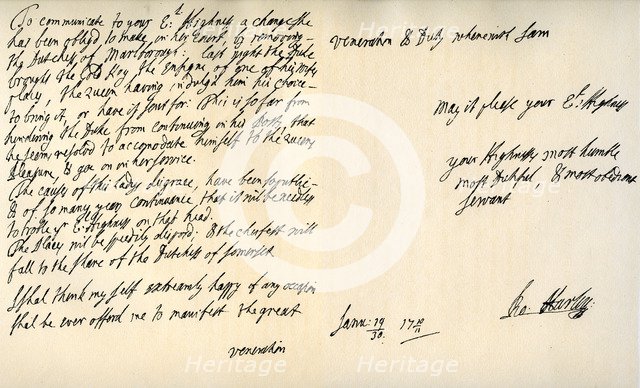 To communicate to your E:ll Highness a change She
has been obliged to make in her Court, by removing
the Dutchess of Marlborough: Last night the Duke
brought the Gold Key, the Ensigne of one of his wifes
places, the Queen having indulg'd him his choice
to bring it, or have it sent for: This is so far from
hindering the Duke from continuing in his Post, that
he seems resolvd to accomodate himself to the Queens
pleasure, & goe on in her service.
The causes of this Ladys disgrace, have been so publi-
& of so many years continuance, that it wil be needless
to troble yr E:ll Highness on that head.
The places wil be speedily disposd, & the cheifest wil
fall to the share of the Dutchess of Somerset
I shal think my self extreamly happy if any occasion
shal be ever offerd me to manifest the great
veneration
veneration & Duty wherewith I am
May it please your E:ll Highness
your Highness most humble
most Dutiful & most obedient
servant
Ro: Harley:
Janu: 19/30. 17 10/11
Heritage
Heritage
Heritage
Heritage